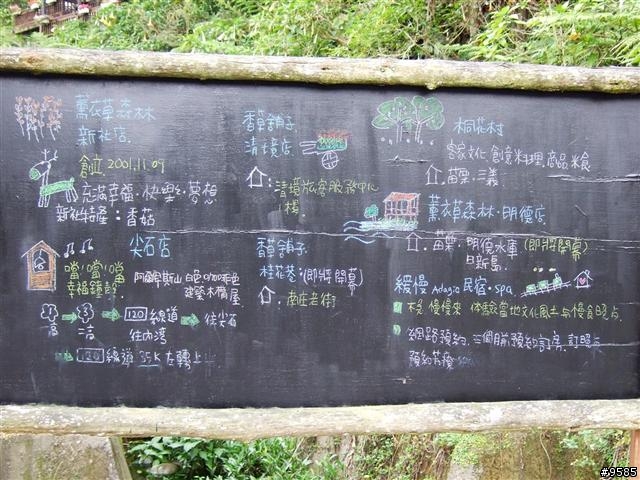 薰衣草森林
新社店
創立 2001.11.09
充滿幸福·快樂·夢想
新社特產：香菇
尖石店
噹!噹!噹
幸福鐘聲
阿爾卑斯山
建築木構屋
120 縣道
往內灣
往尖石
120 縣道 35K 左轉上
香草舖子
清境店
清境旅客服務中心
樓
香草舖子
桂花巷:(即將開幕)
南庄老街
桐花村
客家文化.創意料理.商品.米食
苗栗·三義
薰衣草森林·明德店
苗栗·明德水庫(即將開幕)
日新島
緩慢 Adagio 民宿·spa
慢慢來 体驗當地文化風土与慢食晚点
網路預約.三個月前預約訂房.
預約芳療 spa
#9585